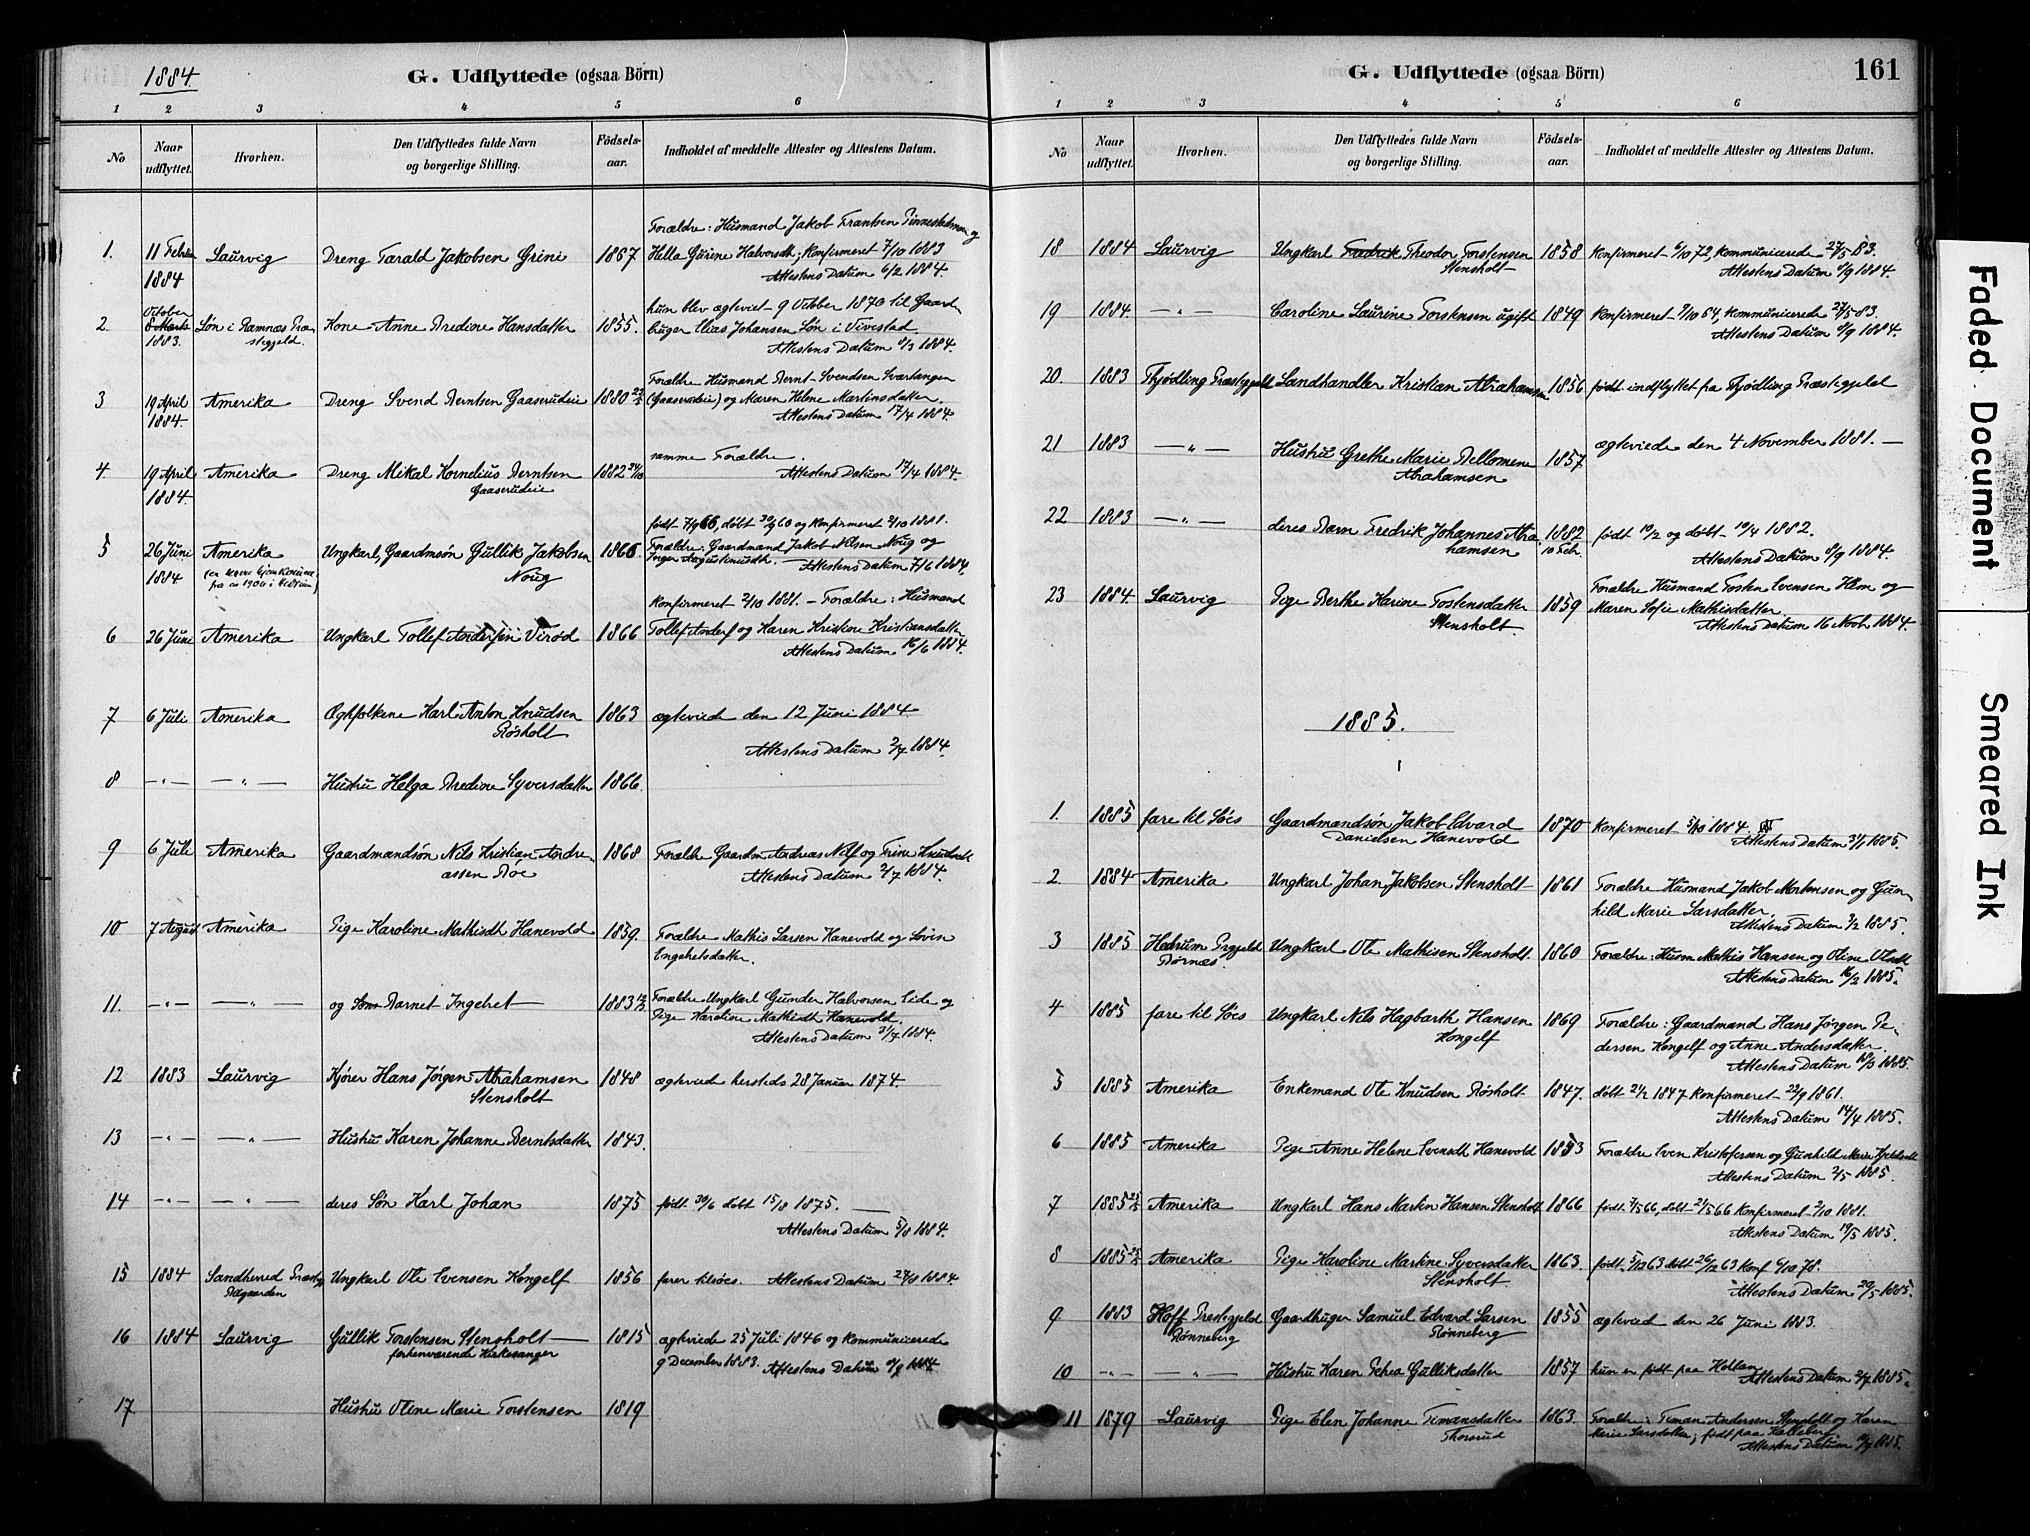 1884
G. Udflyttede (ogsaa Börn)
1 2 3 4 5 6
No
Naar udflyttet.
Hvorhen.
Den Udflyttedes fulde Navn og borgerlige Stilling.
Födsels-aar.
Indholdet af meddelte Attester og Attestens Datum.
Forældre: Husmand Jakob Frantsen
1. 11 Februar Laurvig Dreng Tarald Jakobsen Grini 1867 Hella Gurine Halvorsdt; konfirmeret 7/10 1883
1884 Attestens Datum 6/2 1884.
October hun blev ægteviet 9 October 1870 til Gaard-
2. 8 Marts Løn i Ramnæs Præ- Kone Anne Bredine Hansdatter 1855. bruger Elias Johansen Løn i Vivestad
1883. stegjeld. Attestens Datum 8/3 1884.
Forældre Husmand Bernt Svendsen Svartangen
3 19 April Amerika Dreng Svend Berntsen Gaaserudeie 1880 (Gaaserudeie) og Maren Helene Martinsdatter.
1884 Attestens Datum 17/4 1884
samme Forældre.
4. 19 April Amerika Dreng Mikal Kornelius Berntsen 1882 24/10 Attestens Datum 17/4 1884.
1884. Gaaserudeie
født 7/9 66, døbt 30/9 60 og konfirmeret 2/10 1881.
5 26 Juni Amerika Ungkarl, Gaardmsøn Gullik Jakobsen 1866. Forældre: Gaardmand Jakob Nilsen Noug og
1884 Noug Inger Augustinusdt. Attestens Datum 7/6 1884.
fra ca 1900 i Hedrum)
konfirmeret 2/10 1881. – Forældre: Husmand
6 26 Juni Amerika Ungkarl Tollef Andersen Virød 1866 Tollef Anders og Karen Kristine Kristiansdatter
Attestens Datum 16/6 1884.
7 6 Juli Amerika Ægtefolkene Karl Anton Knudsen 1863 ægteviede den 12 Juni 1884
Røsholt Attestens Datum 2/7 1884.
8 –"– –"– Hustru Helga Bredine Syversdatter 1866.
9 6 Juli Amerika Gaardmandsøn Nils Kristian Andre- 1868 Forældre Gaardm Andreas Nils og Trine Knudsdt
assen Røe Attestens Datum 2/7 1884.
10 7 August Amerika Pige Karoline Mathisdt Hanevold 1859. Forældre Mathis Larsen Hanevold og
Engebretsdatter.
11. –"– –"– og Søn Barnet Ingebret 1883 Forældre Ungkarl Gunder Halvorsen Lide og
Pige Karoline Mathisdt Hanevold.
Attestens Datum 31/7 1884.
12 1883 Laurvig Kjører Hans Jørgen Abrahamsen 1848 ægteviede hersteds 28 Januar 1874
Stensholt
13 –"– –"– Hustru Karen Johanne Berntsdatter 1843.
14 –"– –"– deres Søn Karl Johan 1875 født 30/6 døbt 15/8 1875.
Attestens Datum 5/8 1884.
15 1884 Sandherred Præstegj Ungkarl Ole Evensen Kongelf 1856 farer tilsøes. Attestens Datum 22/8 1884
16 1884 Laurvig Gullik Torstensen Stensholt 1815 ægteviede 25 Juli 1846 og kommunicerede
forhenværende Kirkesanger 9 December 1883. Attestens Datum 8/9 1884
17. Hustru Oline Marie Torstensen 1819
G. Udflyttede (ogsaa Börn)
161
1 2 3 4 5 6
No
Naar udflyttet.
Hvorhen.
Den Udflyttedes fulde Navn og borgerlige Stilling.
Födsels-aar.
Indholdet af meddelte Attester og Attestens Datum.
18 1884 Laurvig Ungkarl Fredrik Theodor Torstensen 1858 konfirmeret 6/10 72, kommunicerede 27/5 83.
Stensholt Attestens Datum 8/9 1884.
19 1884. –"– Caroline Laurine Torstensen ugift 1849 konfirmeret 9/10 64, kommunicerede 27/5 83.
Attestens Datum 8/9 1884.
20. 1883 Thjødling Præstegjeld Landhandler Kristian Abrahamsen 1856 født indflyttet fra Thjødling Præstegjeld
21 1883 –"– Hustru Grethe Marie Bellomene 1857 ægteviede den 4 November 1881. –
Abrahamsen
22 1883 –"– deres Barn Fredrik Johannes Abra- 1882 født 10/2 og døbt 10/4 1882.
hamsen 10 Feb. Attestens Datum 8/9 1884.
23 1884. Laurvig Pige Berthe Karine Tostensdatter 1859 Forældre Husmand Tosten Evensen Hem og
Stensholt. Maren Sofie Mathisdatter.
Attestens Datum 16 Novb. 1884.
1885.
1. 1885 fare til Søes Gaardmandsøn Jakob Edvard 1870 konfirmeret 5/10 1884.
Danielsen Hanevold Attestens Datum 31/1 1885.
2. 1884 Amerika Ungkarl Johan Jakobsen Stensholt 1861 Forældre Husmand Jakob Mortensen og Gun-
hild Marie Larsdatter.
Attestens Datum 3/2 1885.
3 1885 Hedrum Prgjeld Ungkarl Ole Mathisen Stensholt. 1860 Forældre: Husm Mathis Hansen og Oline Olsdt
Bornæs. Attestens Datum 16/2 1885.
4 1885 fare til Søes Ungkarl Nils Hagbarth Hansen 1869 Forældre: Gaardmand Hans Jørgen Pe-
Kongelf dersen Kongelf og Anne Andersdatter.
Attestens Datum 10/3 1885.
5 1885 Amerika Enkemand Ole Knudsen Røsholt 1847. døbt 21/2 1847 konfirmeret 22/9 1861.
Attestens Datum 14/4 1885.
6 1885 Amerika Pige Anne Helene Evensdt Hanevold 1853 Forældre Even Kristofersen og Gunhild Marie Kjeldsdt
Attestens Datum 2/5 1885.
7 1885 Amerika Ungkarl Hans Martin Hansen Stensholt 1866 født 7/5 66, døbt 21/5 66 konfirmeret 2/10 1881.
Attestens Datum 19/5 1885.
8 1885 Amerika Pige Karoline Martine Syversdatter 1863. født 5/12 63 døbt 26/12 63 konf 6/10 78.
Stensholt. Attestens Datum 20/5 1885.
9 1883 Hoff Præstegjeld Gaardbruger Samuel Edvard Larsen 1855 ægteviede den 26 Juni 1883.
Rønneberg Rønneberg
10 –"– –"– Hustru Karen Gulliksdatter 1857 hun er født paa
Attestens Datum 2/7 1885.
11 1879 Laurvig Pige Elen Johanne Timansdatter 1863. Forældre: Timan Andersen Stensholt og Karen
Thorsrud Marie Larsdatter; født paa
Attestens Datum 1885.
Faded Document
Smeared Ink